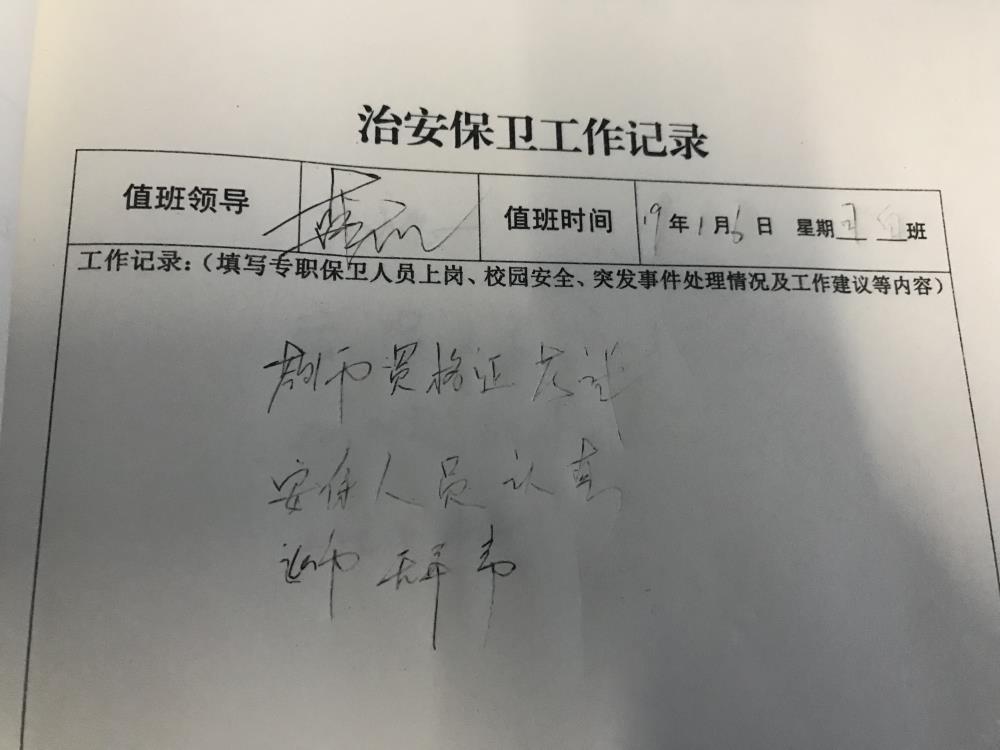 治安保卫工作记录
值班领导 值班时间 19年1月6日 星期 白班
工作记录：（填写专职保卫人员上岗、校园安全、突发事件处理情况及工作建议等内容）
教师资格证考试
安保人员认真